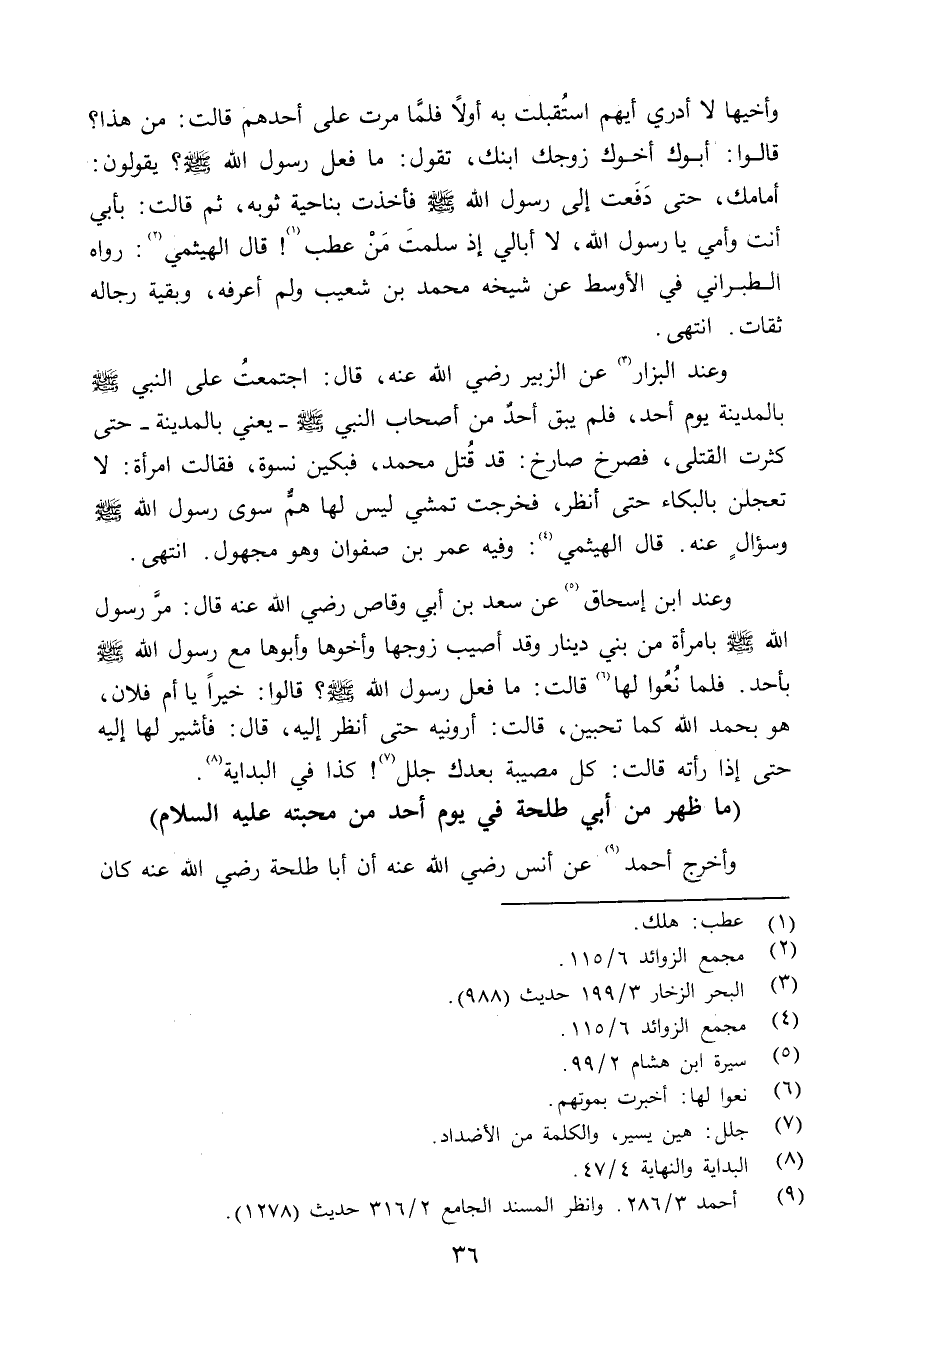 وأخيها لا أدري أيهم استُقبلت به أولاً فلمَّا مرت على أحدهم قالت: من هذا؟
قالـوا: أبـوك أخـوك زوجك ابنك، تقول: ما فعل رسول الله ﷺ؟ يقولون:
أمامك، حتى دَفَعت إلى رسول الله ﷺ فأخذت بناحية ثوبه، ثم قالت: بأبي
أنت وأمي يا رسول الله، لا أبالي إذ سلمتَ مَنْ عطب(١)! قال الهيثمي(٢): رواه
الـطبـراني في الأوسط عن شيخه محمد بن شعيب ولم أعرفه، وبقية رجاله
ثقات. انتهى.
وعند البزار(٣) عن الزبير رضي الله عنه، قال: اجتمعتُ على النبي ﷺ
بالمدينة يوم أحد، فلم يبق أحدٌ من أصحاب النبي ﷺ ـ يعني بالمدينة ـ حتى
كثرت القتلى، فصرخ صارخ: قد قُتل محمد، فبكين نسوة، فقالت امرأة: لا
تعجلن بالبكاء حتى أنظر، فخرجت تمشي ليس لها همٌّ سوى رسول الله ﷺ
وسؤالٍ عنه. قال الهيثمي(٤): وفيه عمر بن صفوان وهو مجهول. انتهى.
وعند ابن إسحاق(٥) عن سعد بن أبي وقاص رضي الله عنه قال: مرَّ رسول
الله ﷺ بامرأة من بني دينار وقد أصيب زوجها وأخوها وأبوها مع رسول الله ﷺ
بأحد. فلما نُعُوا لها(٦) قالت: ما فعل رسول الله ﷺ؟ قالوا: خيراً يا أم فلان،
هو بحمد الله كما تحبين، قالت: أرونيه حتى أنظر إليه، قال: فأشير لها إليه
حتى إذا رأته قالت: كل مصيبة بعدك جلل(٧)! كذا في البداية(٨).
(ما ظهر من أبي طلحة في يوم أحد من محبته عليه السلام)
وأخرج أحمد(٩) عن أنس رضي الله عنه أن أبا طلحة رضي الله عنه كان
(١) عطب: هلك.
(٢) مجمع الزوائد ٦/١١٥.
(٣) البحر الزخار ٣/١٩٩ حديث (٩٨٨).
(٤) مجمع الزوائد ٦/١١٥.
(٥) سيرة ابن هشام ٢/٩٩.
(٦) نعوا لها: أخبرت بموتهم.
(٧) جلل: هين يسير، والكلمة من الأضداد.
(٨) البداية والنهاية ٤/٤٧.
(٩) أحمد ٣/٢٨٦. وانظر المسند الجامع ٢/٣١٦ حديث (١٢٧٨).
٣٦